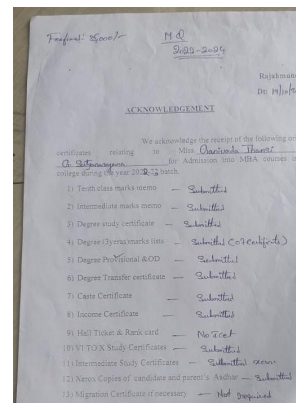 M Q
2022-2024
Rajahmun
Dt: 19/10/
ACKNOWLEDGEMENT
We acknowledge the receipt of the following or
certificates relating to Miss
for Admission into MBA courses in
college during the year batch.
1) Tenth class marks memo — Submitted
2) Intermediate marks memo — Submitted
3) Degree study certificate — Submitted
4) Degree (3yeras)marks lists — Submitted
5) Degree Provisional &OD — Submitted
6) Degree Transfer certificate — Submitted
7) Caste Certificate — Submitted
8) Income Certificate — Submitted
9) Hall Ticket & Rank card —
10) VI TO X Study Certificates — Submitted
11) Intermediate Study Certificates — Submitted xerox
12) Xerox Copies of candidate and parent's Aadhar — Submitted
13) Migration Certificate if necessary — Not required